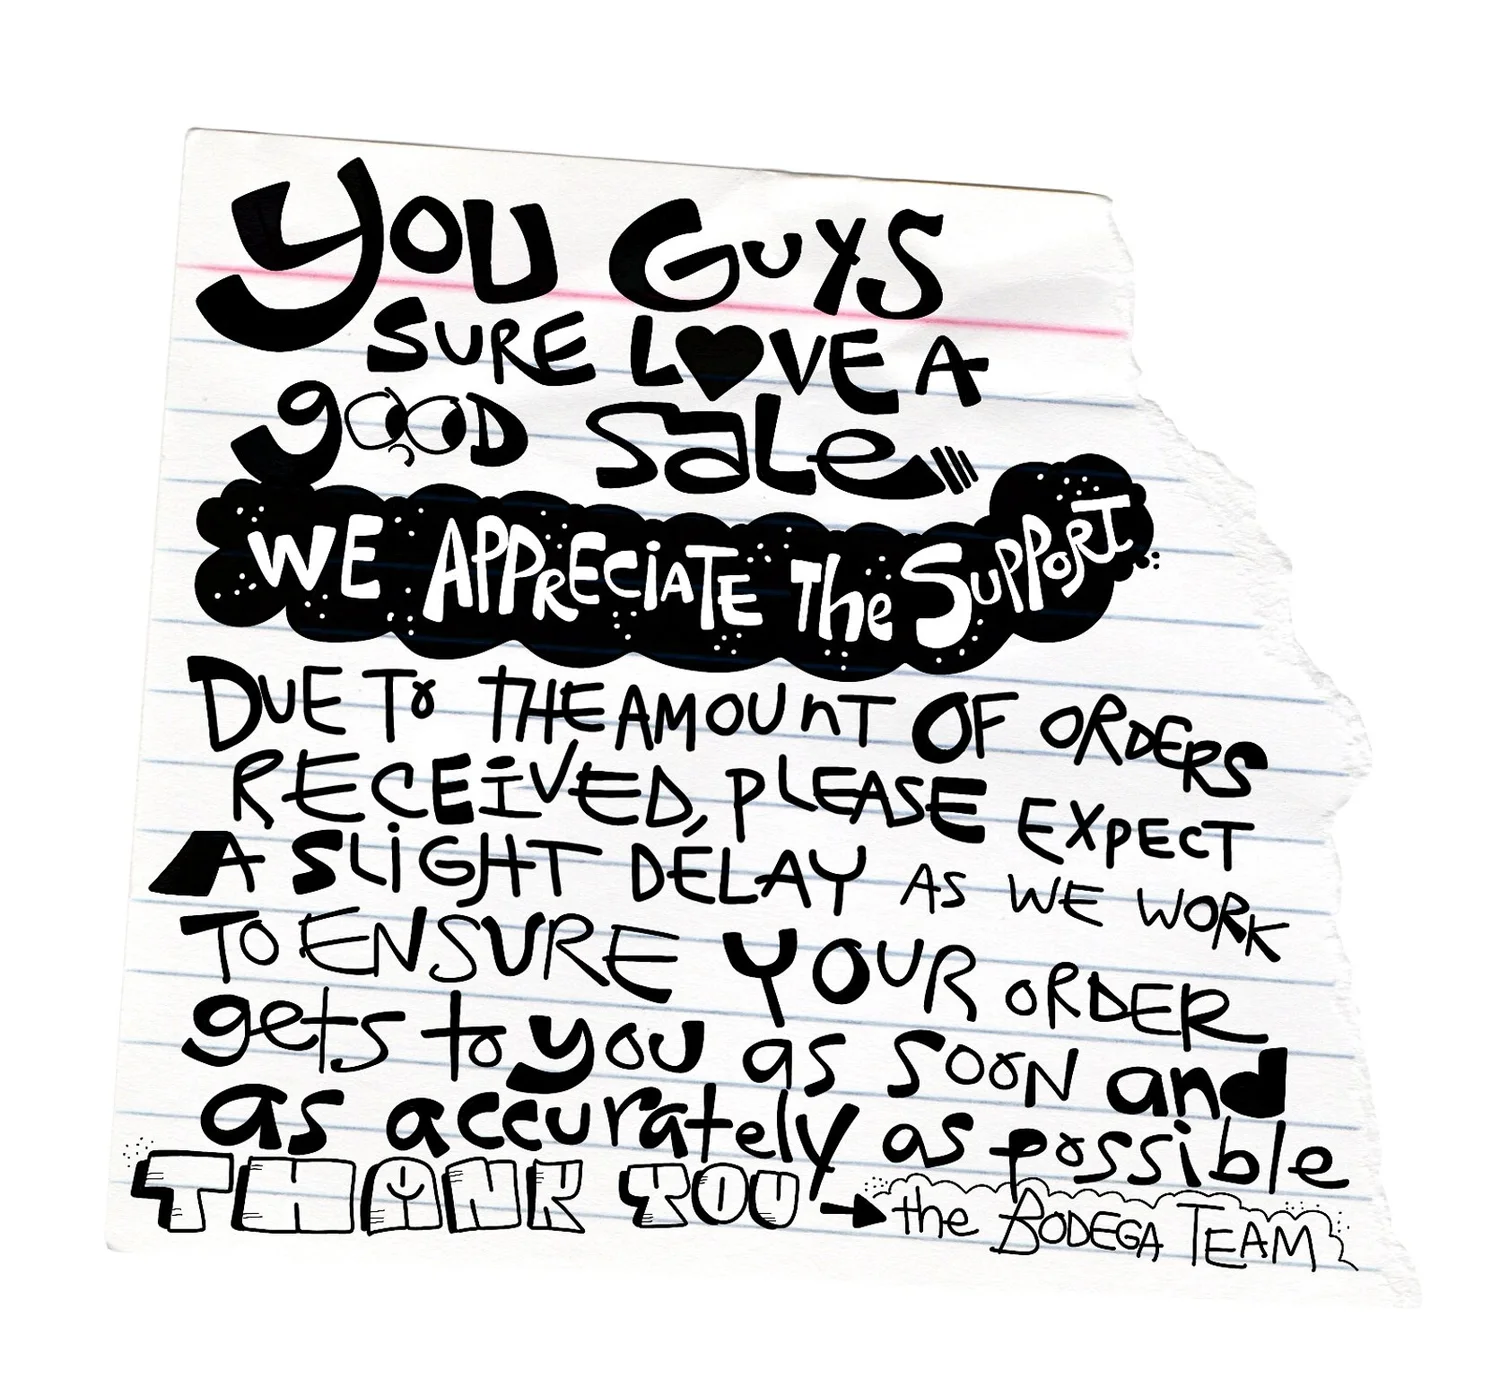 You Guys
SURE L♥VE A
good sale
WE APPRECiATE The SUPPORT
DUE To THE AMOUnT OF ORDERS
RECEiVED, PLEASE EXPECT
A SLiGHT DELAY AS WE WORK
TO ENSURE YOUR ORDER
gets to you as soon and
as accurately as possible
THANK YOU → the BODEGA TEAM